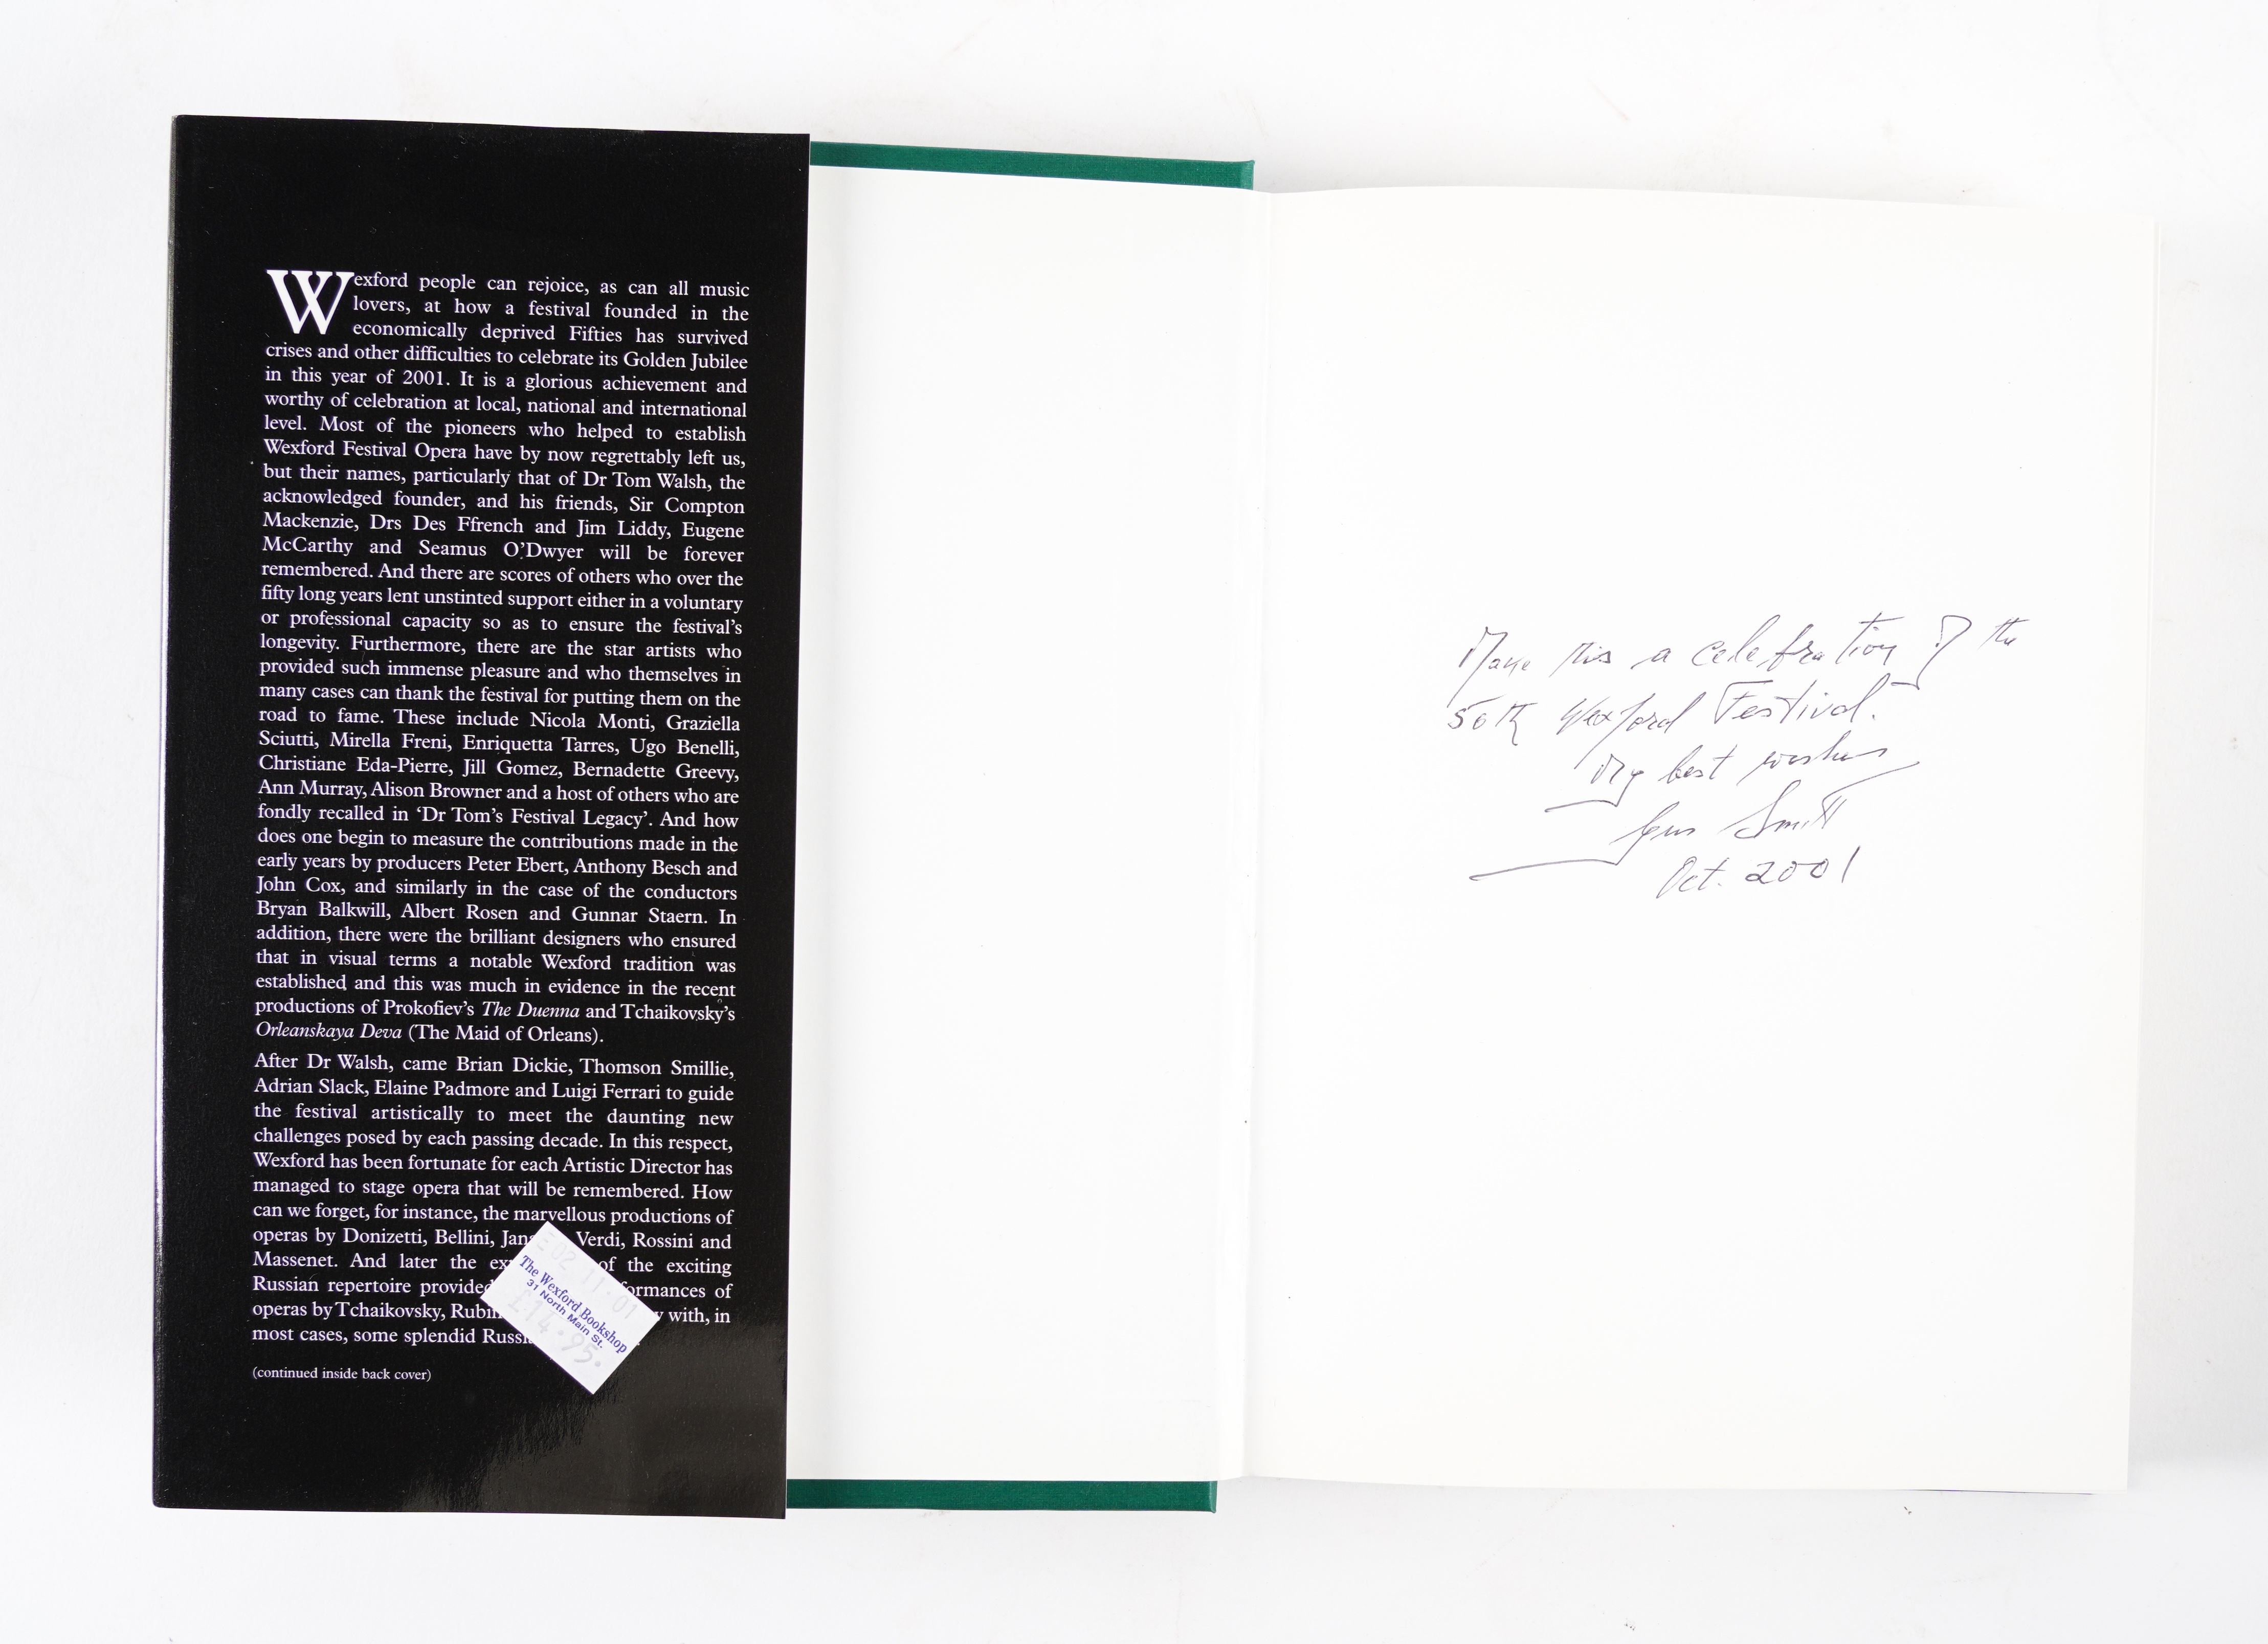 Wexford people can rejoice, as can all music
lovers, at how a festival founded in the
economically deprived Fifties has survived
crises and other difficulties to celebrate its Golden Jubilee
in this year of 2001. It is a glorious achievement and
worthy of celebration at local, national and international
level. Most of the pioneers who helped to establish
Wexford Festival Opera have by now regrettably left us,
but their names, particularly that of Dr Tom Walsh, the
acknowledged founder, and his friends, Sir Compton
Mackenzie, Drs Des Ffrench and Jim Liddy, Eugene
McCarthy and Seamus O'Dwyer will be forever
remembered. And there are scores of others who over the
fifty long years lent unstinted support either in a voluntary
or professional capacity so as to ensure the festival's
longevity. Furthermore, there are the star artists who
provided such immense pleasure and who themselves in
many cases can thank the festival for putting them on the
road to fame. These include Nicola Monti, Graziella
Sciutti, Mirella Freni, Enriquetta Tarres, Ugo Benelli,
Christiane Eda-Pierre, Jill Gomez, Bernadette Greevy,
Ann Murray, Alison Browner and a host of others who are
fondly recalled in 'Dr Tom's Festival Legacy'. And how
does one begin to measure the contributions made in the
early years by producers Peter Ebert, Anthony Besch and
John Cox, and similarly in the case of the conductors
Bryan Balkwill, Albert Rosen and Gunnar Staern. In
addition, there were the brilliant designers who ensured
that in visual terms a notable Wexford tradition was
established and this was much in evidence in the recent
productions of Prokofiev's The Duenna and Tchaikovsky's
Orleanskaya Deva (The Maid of Orleans).
After Dr Walsh, came Brian Dickie, Thomson Smillie,
Adrian Slack, Elaine Padmore and Luigi Ferrari to guide
the festival artistically to meet the daunting new
challenges posed by each passing decade. In this respect,
Wexford has been fortunate for each Artistic Director has
managed to stage opera that will be remembered. How
can we forget, for instance, the marvellous productions of
operas by Donizetti, Bellini, Verdi, Rossini and
Massenet. And later the of the exciting
Russian repertoire provided of
operas by Tchaikovsky, with, in
most cases, some splendid
(continued inside back cover)
E02·11·01
The Wexford Bookshop
31 North Main St.
£14·95·
Make this a celebration of the
50th Wexford Festival.
My best wishes
Gus Smith
Oct. 2001